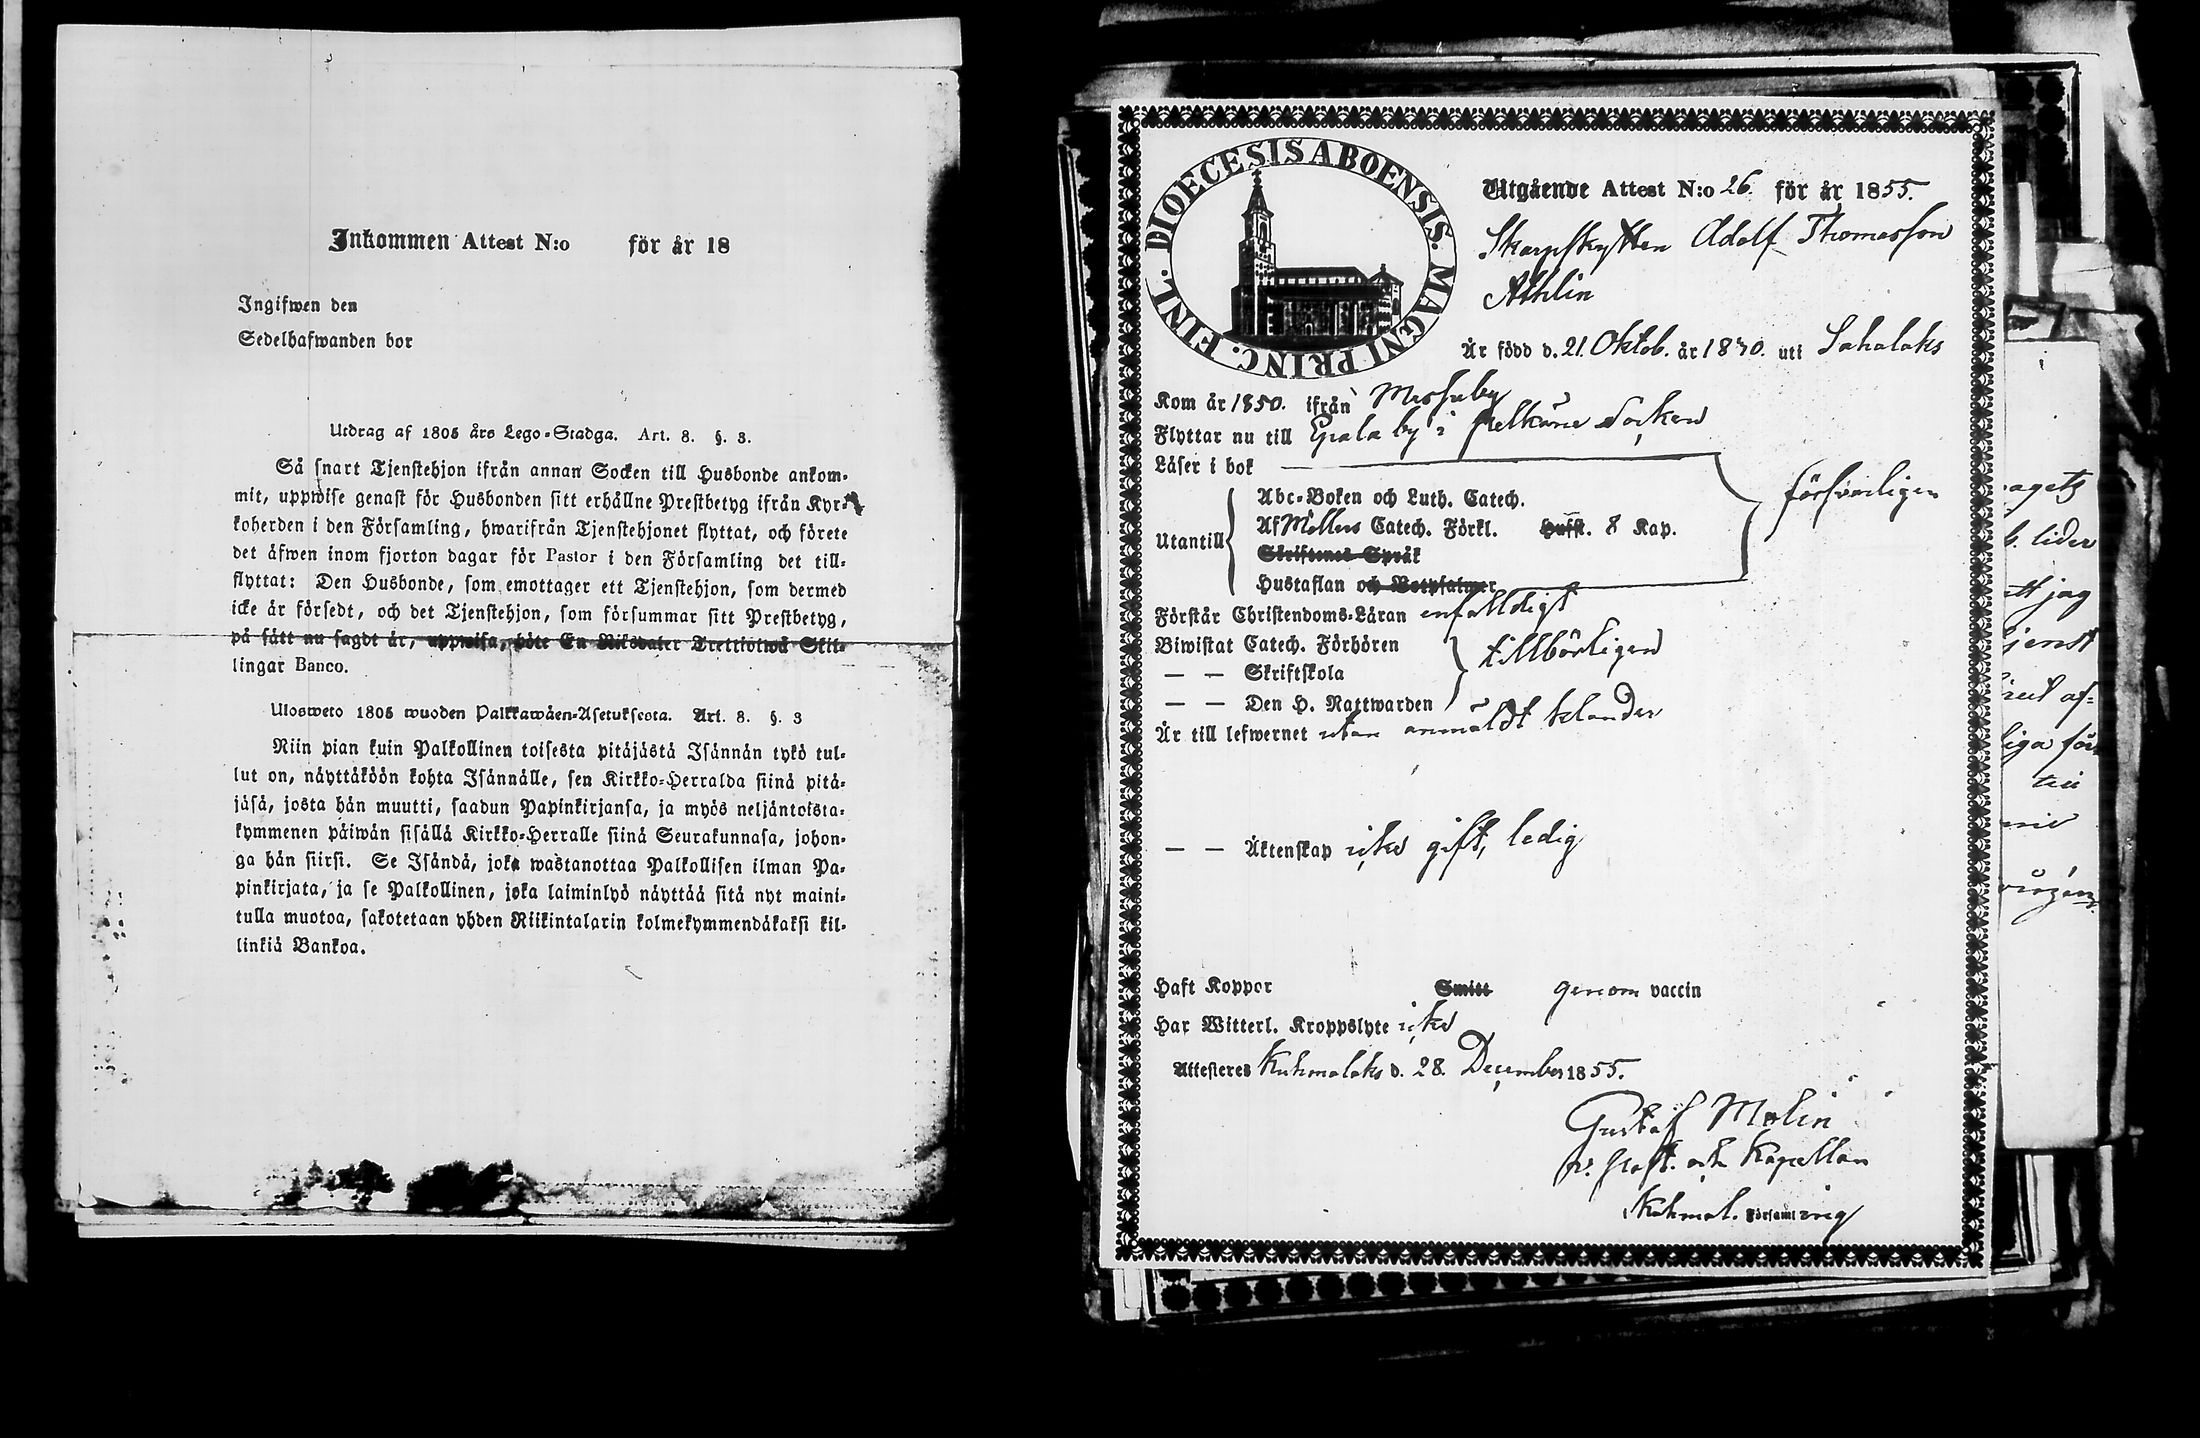 Inkommen Attest N:o för år 18
Ingifwen den
Sedelhafwanden bor
Utdrag af 1805 års Lego-Stadga. Art. 8. §. 3.
Så snart Tjenstehjon ifrån annan Socken till Husbonde ankom-
mit, uppwise genast för Husbonden sitt erhållne Prestbetyg ifrån Kyr-
koherden i den Församling, hwarifrån Tjenstehjonet flyttat, och förete
det äfwen inom fjorton dagar för Pastor i den Församling det till-
flyttat: Den Husbonde, som emottager ett Tjenstehjon, som dermed
icke är försedt, och det Tjenstehjon, som försummar sitt Prestbetyg,
på sätt nu sagdt är, uppwisa, böte En Riksdaler Trettiotwå Skil-
lingar Banco.
Ulosweto 1805 wuoden Palkkawäen-Asetuksesta. Art. 8. §. 3
Niin pian kuin Palkollinen toisesta pitäjästä Isännän tykö tul-
lut on, näyttäköön kohta Isännälle, sen Kirkko-Herralda siinä pitä-
jäsä, josta hän muutti, saadun Papinkirjansa, ja myös neljäntoista-
kymmenen päiwän sisällä Kirkko-Herralle siinä Seurakunnasa, johon-
ga hän siirsi. Se Isändä, joka wastanottaa Palkollisen ilman Pa-
pinkirjata, ja se Palkollinen, joka laiminlyö näyttää sitä nyt maini-
tulla muotoa, sakotetaan yhden Riikintalarin kolmekymmendäkaksi kil-
linkiä Bankoa.
DIOECESIS ABOENSIS. MAGNI PRINC. FINL.
Utgående Attest N:o 26. för år 1855.
Skarpskytten Adolf Thomasson
Ahlin
Är född d. 21. Oktob. år 1830. uti Sahalaks
Kom år 1850. ifrån Messuby
Flyttar nu till by i Pelkäne Socken
Läser i bok
försvarligen
Utantill
Abc-Boken och Luth. Catech.
Af Möllers Catech. Förkl. Huffst. 8 Kap.
Skriftenes Språk
Hustaflan och Botpsalmer
Förstår Christendoms-Läran enfaldigt
Biwistat Catech. Förhören
tillbörligen
— — Skriftskola
— — Den H. Nattwarden
Är till lefwernet utan anmäldt klander
— — Äktenskap icke gift, ledig
Haft Koppor Smitt genom vaccin
Har Witterl. Kroppslyte icke
Attesteres Kuhmalaks d. 28. December 1855.
Gustaf Molin
v. Past. och Kapellan
Kuhmal. Församling
agets
lider
att jag
tjenst
af-
liga för